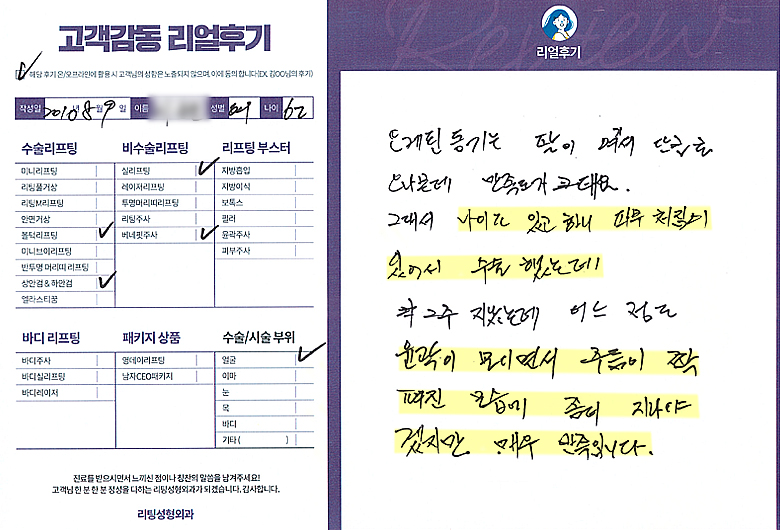 고객감동 리얼후기
해당 후기 온/오프라인에 활용 시 고객님의 성함은 노출되지 않으며, 이에 동의 합니다(EX. 김OO님의 후기)
작성일 2010년 8월 9일 이름 성별 나이 62
수술리프팅
미니리프팅
리팅풀거상
리팅M리프팅
안면거상
볼턱리프팅
미니브이리프팅
반투명 머리띠 리프팅
상안검 & 하안검
엘라스티꿈
비수술리프팅
실리프팅
레이저리프팅
투명머리띠리프팅
리팅주사
베네핏주사
리프팅 부스터
지방흡입
지방이식
보톡스
필러
윤곽주사
피부주사
바디 리프팅
바디주사
바디실리프팅
바디레이저
패키지 상품
영데이리프팅
남자CEO패키지
수술/시술 부위
얼굴
이마
눈
목
바디
기타 ( )
진료를 받으시면서 느끼신 점이나 칭찬의 말씀을 남겨주세요!
고객님 한 분 한 분 정성을 다하는 리팅성형외과가 되겠습니다. 감사합니다.
리팅성형외과
Review
리얼후기
오게된 동기는 딸이 여기서
만족도가 크대요.
그래서 나이도 있고 하니 피부 처짐이
있어서 수술 했는데!
지났는데 어느 정도
윤곽이 보이면서 주름이 쫙
펴진 모습에 좀더 지나야
겠지만 매우 만족입니다.